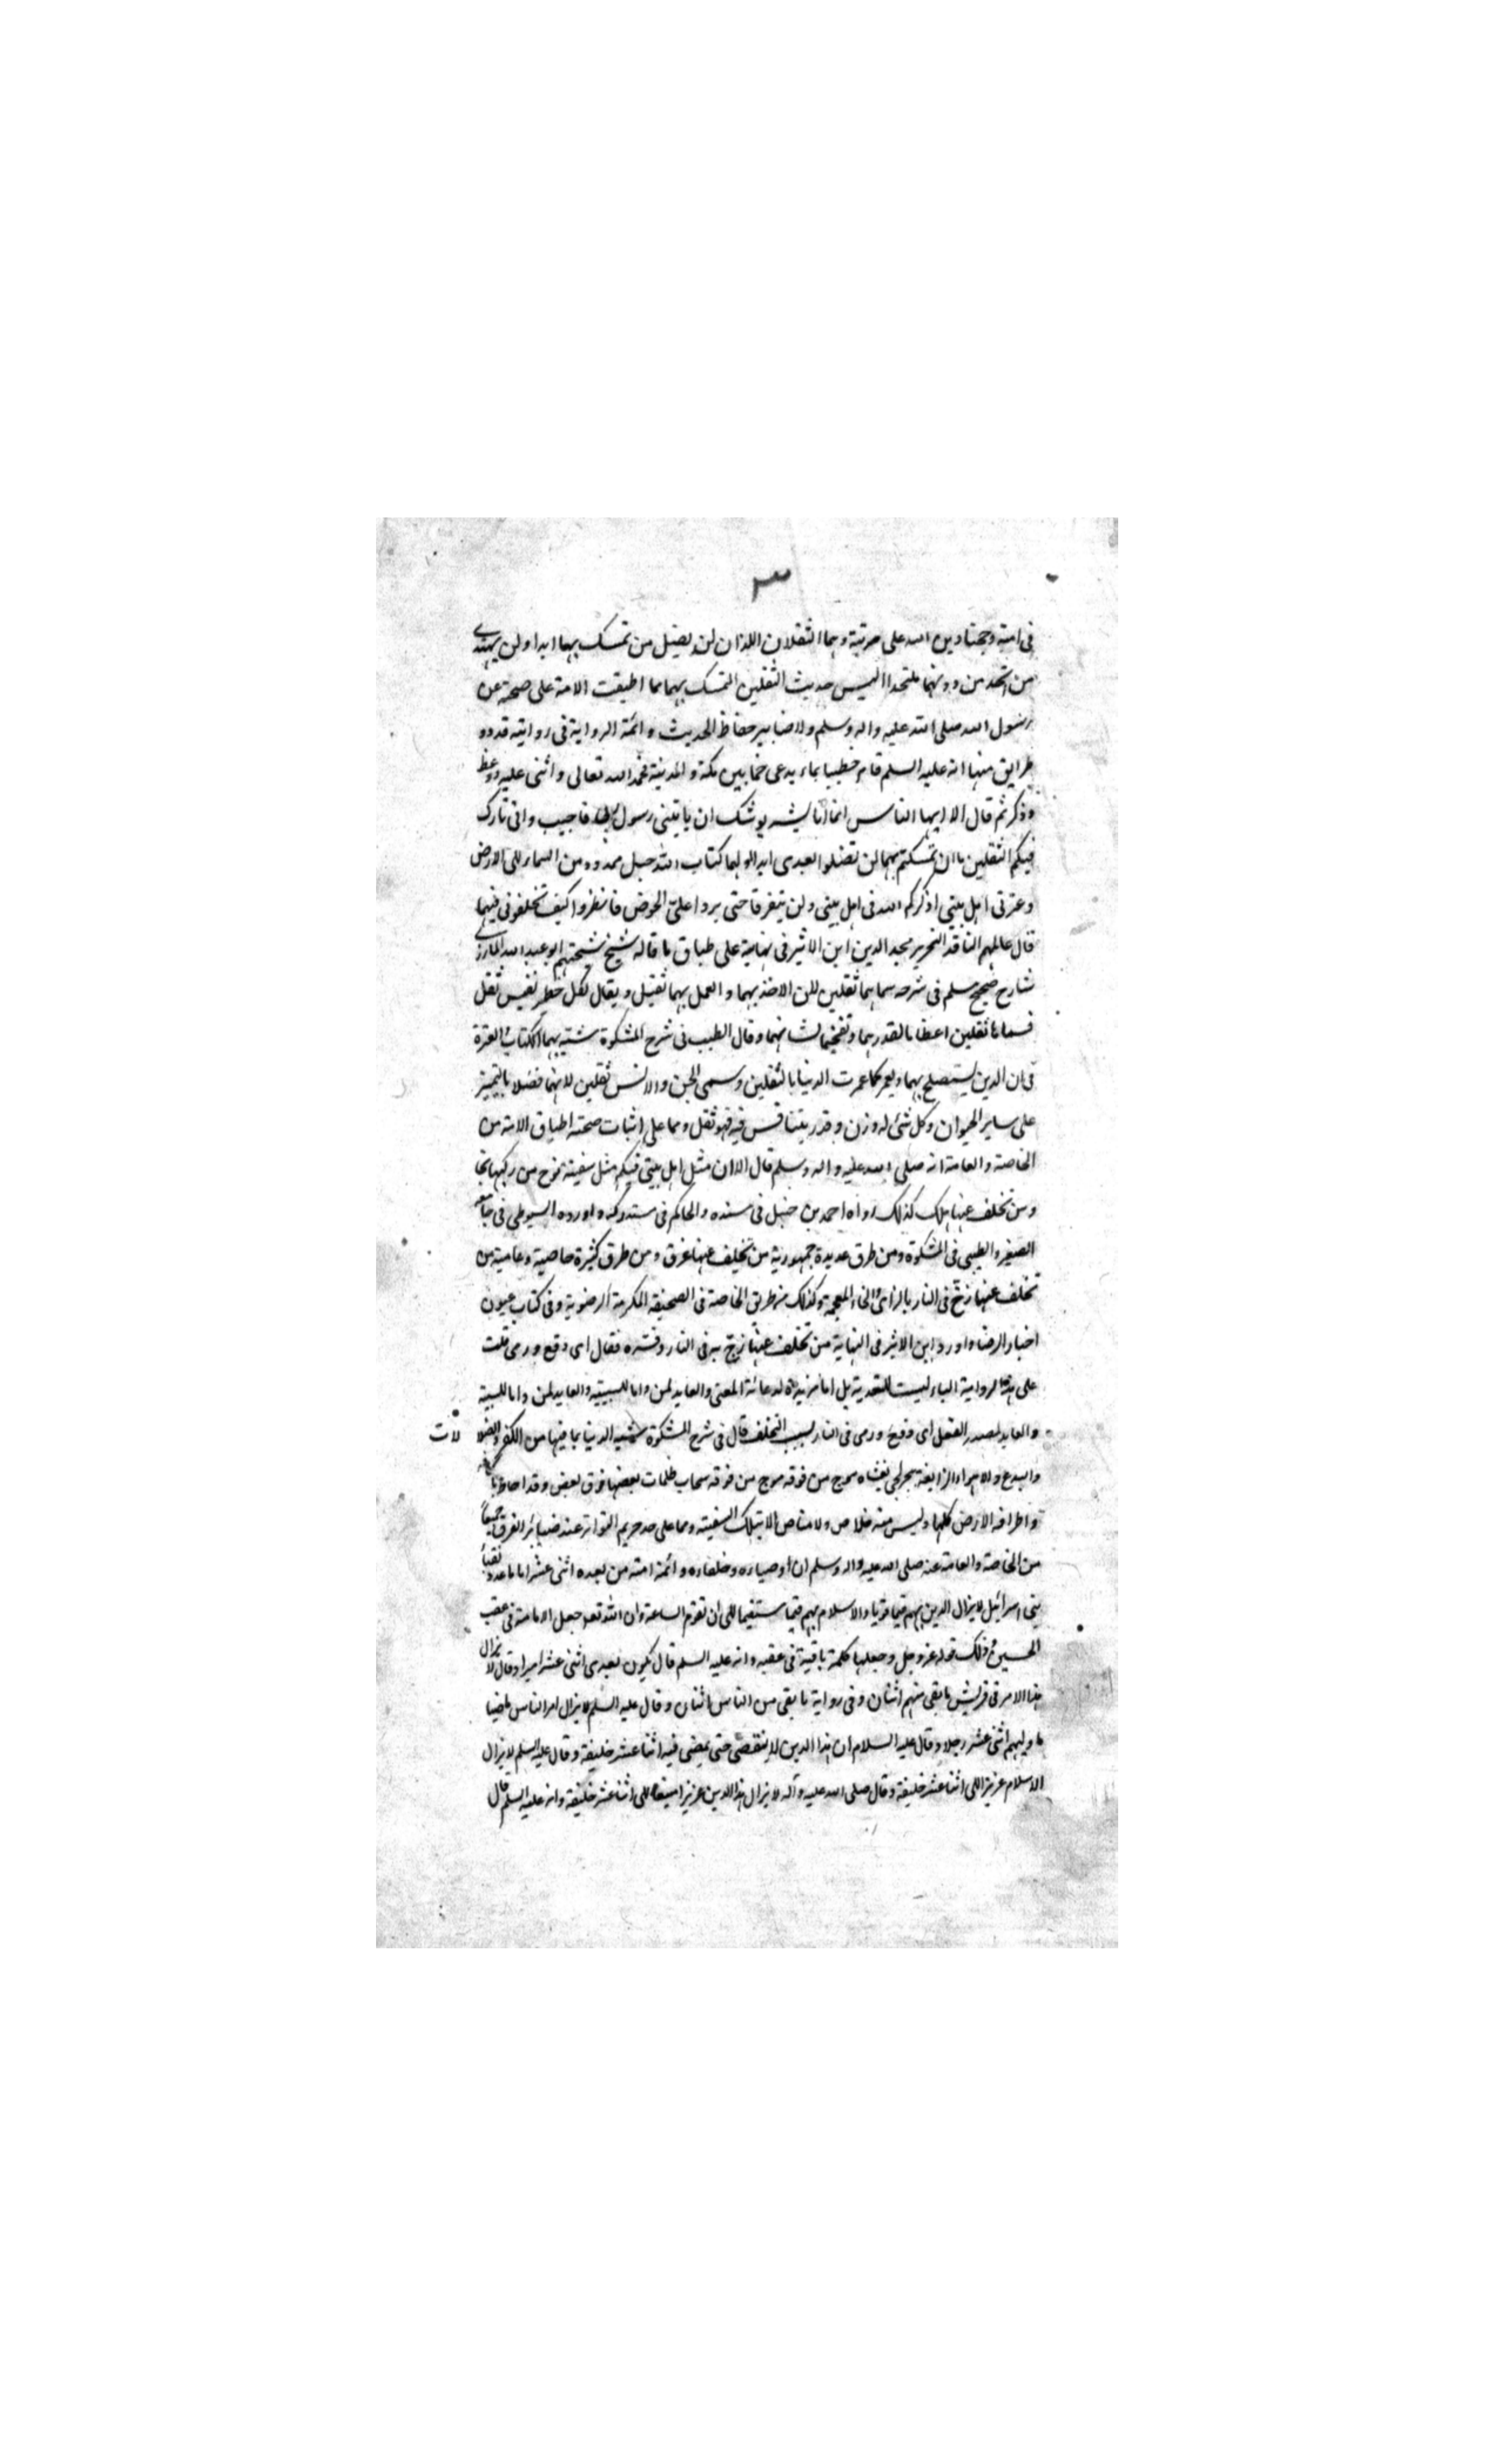 ٣
فى امته وحجتا دين الله على مرتبة وهما الثقلان اللذان لن يضل من تمسك بهما ابدا ولن يهتدى
من اتخذ من دونهما ملتحدا اليس حديث الثقلين التمسك بهما مما اطبقت الامة على صحته عن
رسول الله صلى الله عليه واله وسلم ولاضابير حفاظ الحديث وائمة الرواية فى روايته قدد و
طرايق منها انه عليه السلم قام خطيبا بماء يدعى خما بين مكة والمدينة فحمد الله تعالى واثنى عليه ووعظ
وذكر ثم قال الا ايها الناس انما انا بشر يوشك ان ياتينى رسول فاجيب وانى تارك
فيكم الثقلين ما ان تمسكتم بهما لن تضلوا بعدى ابدا اولهما كتاب الله حبل ممدود من السماء الى الارض
وعترتى اهل بيتى اذكركم الله فى اهل بيتى ولن يتفرقا حتى يردا على الحوض فانظروا كيف تخلفونى فيهما
قال عالمهم الناقد النحرير مجد الدين ابن الاثير فى نهايته على طباق ما قاله شيخ شيختهم ابو عبد الله المازرى
شارح صحيح مسلم فى شرحه سماهما ثقلين لان الاخذ بهما والعمل بهما ثقيل ويقال لكل خطير نفيس ثقل
فسماهما ثقلين اعظاما لقدرهما وتفخيما لشانهما وقال الطيبى فى شرح المشكوة شبه بهما الكتاب والعترة
فى ان الدين يستصلح بهما ويعمر كما عمرت الدنيا بالثقلين وسمى الجن والانس ثقلين لانهما فضلا بالتميز
على ساير الحيوان وكل شئ له وزن وقدر يتنافس فيه فهو ثقل ومما على اثبات صحته اطباق الامة من
الخاصة والعامة انه صلى الله عليه واله وسلم قال الا ان مثل اهل بيتى فيكم مثل سفينة نوح من ركبها نجا
ومن تخلف عنها هلك كذلك رواه احمد بن حنبل فى مسنده والحاكم فى مستدركه واورده السيوطى فى جامعه
الصغير والطيبى فى المشكوة ومن طرق عديدة جمهورية من تخلف عنها غرق ومن طرق كثيرة خاصية وعامية من
تخلف عنها زخ فى النار بالزاى والخاء المعجمة وكذلك من طريق الخاصة فى الصحيفة المكرمة الرضوية وفى كتاب عيون
اخبار الرضا واورد ابن الاثير فى النهاية من تخلف عنها زخ به فى النار وفسره فقال اى دفع ورمى قلت
على هذه الرواية الباء ليست للتعدية بل اما مزيدة لدعامة المعنى والعايد لمن واما للسببية والعايد لمن واما للسببية
والعايد لمصدر الفعل اى دفع ورمى فى النار بسبب التخلف قال فى شرح المشكوة شبه الدنيا بما فيها من الكفر والضلا
لات
والبدع والاهواء الزايغة ببحر لجى يغشاه موج من فوقه موج من فوقه سحاب ظلمات بعضها فوق بعض وقد احاط
واطرافه الارض كلها وليس منه خلاص ولا مناص الا بتلك السفينة ومما على صدد حريم التواتر عند الفرق جميعا
من الخاصة والعامة عنه صلى الله عليه واله وسلم ان اوصياءه وخلفاءه وائمة امته من بعده اثنى عشر اماما عدد نقبا
بنى اسرائيل لا يزال الدين بهم قيما قويا والاسلام بهم قيما مستقيما الى ان تقوم الساعة وان الله تعالى جعل الامامة فى عقب
الحسين وذلك قوله عز وجل وجعلها كلمة باقية فى عقبه وانه عليه السلم قال يكون بعدى اثنى عشر اميرا وقال لا يزال
هذا الامر فى قريش ما بقى منهم اثنان وفى رواية ما بقى من الناس اثنان وقال عليه السلم لا يزال امر الناس ماضيا
ما وليهم اثنى عشر رجلا وقال عليه السلام ان هذا الدين لا ينقضى حتى يمضى فيه اثنا عشر خليفة وقال عليه السلم لا يزال
الاسلام عزيزا الى اثنا عشر خليفة وقال صلى الله عليه وآله لا يزال هذا الدين عزيزا منيعا الى اثنا عشر خليفة وانه عليه السلم قال